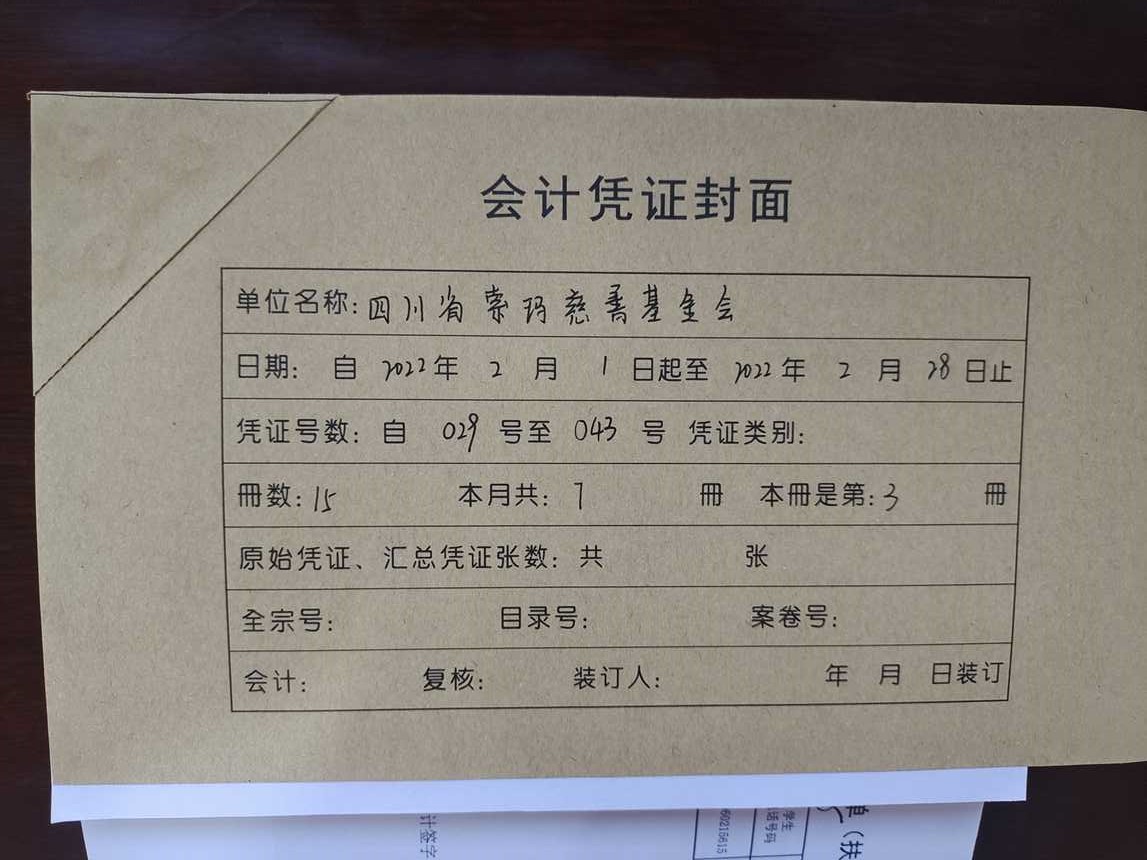 会计凭证封面
单位名称: 四川省索玛慈善基金会
日期: 自 2022 年 2 月 1 日起至 2022 年 2 月 28 日止
凭证号数: 自 029 号至 043 号 凭证类别:
冊数: 15 本月共: 7 冊 本冊是第: 3 冊
原始凭证、汇总凭证张数: 共 张
全宗号: 目录号: 案卷号:
会计: 复核: 装订人: 年 月 日装订
计签字
60215615
学生
话号码
单 (扶